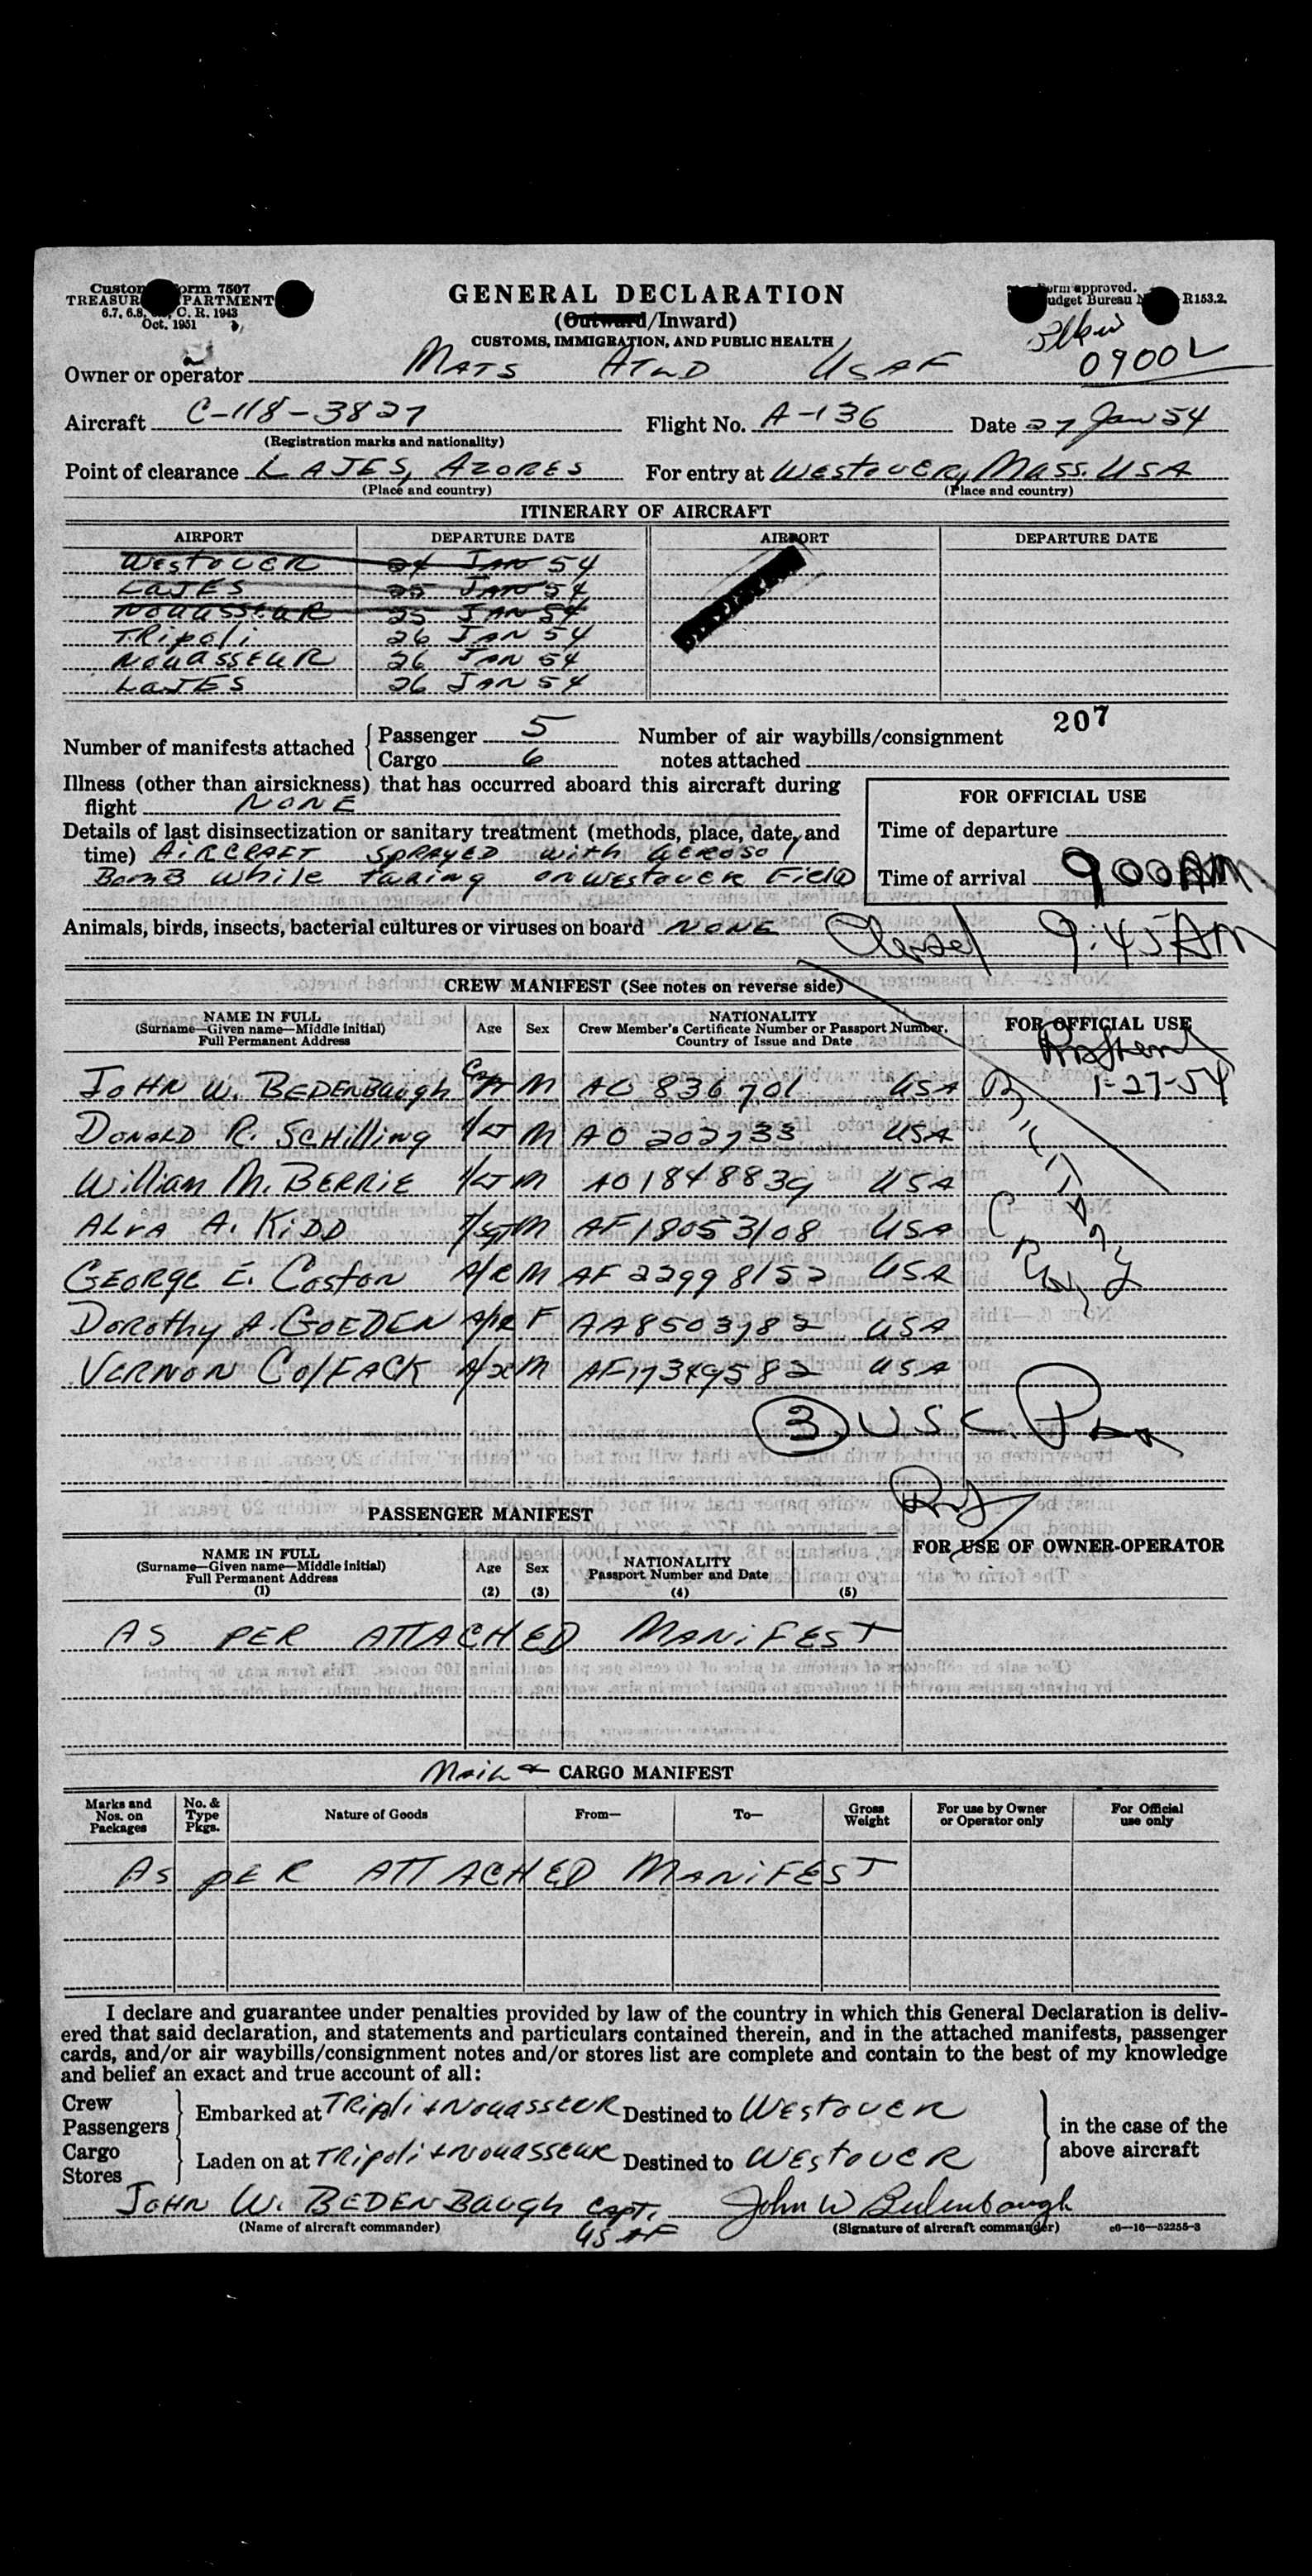 Customs Form 7507
TREASURY DEPARTMENT
C. R. 1943
Oct. 1951
GENERAL DECLARATION
(Outward/Inward)
CUSTOMS, IMMIGRATION, AND PUBLIC HEALTH
Form approved.
Budget Bureau R153.2.
0900L
Owner or operator MATS ATLD USAF
Aircraft C-118-3827 Flight No. A-136 Date 27 Jan 54
(Registration marks and nationality)
Point of clearance LAJES, AZORES For entry at WESTOVER, MASS. USA
(Place and country) (Place and country)
ITINERARY OF AIRCRAFT
AIRPORT DEPARTURE DATE AIRPORT DEPARTURE DATE
WESTOVER 24 JAN 54
LAJES 25 JAN 54
NOUASSEUR 25 JAN 54
TRipoli 26 JAN 54
NOUASSEUR 26 JAN 54
LAJES 26 JAN 54
207
Number of manifests attached Passenger 5 Number of air waybills/consignment
Cargo 6 notes attached
Illness (other than airsickness) that has occurred aboard this aircraft during
flight NONE
FOR OFFICIAL USE
Details of last disinsectization or sanitary treatment (methods, place, date, and
time) AiRCRAFT SPRAYED with aerosol
BOMB while taxing on WESTOVER FiElD
Time of departure
Time of arrival 900AM
Animals, birds, insects, bacterial cultures or viruses on board NONE
9:45AM
CREW MANIFEST (See notes on reverse side)
NAME IN FULL
(Surname—Given name—Middle initial)
Full Permanent Address
Age Sex
NATIONALITY
Crew Member's Certificate Number or Passport Number,
Country of Issue and Date
FOR OFFICIAL USE
1-27-54
JOHN W. BEDENBAUGH CAPT M AO 836701 USA
DONALD R. SCHilling 1/LT M AO 202733 USA
William M. BERRIE 1/LT M AO1848839 USA
ALVA A. KIDD T/SGT M AF18053108 USA
GEORGE E. Coston M AF 22998152 USA
DOROTHY A. GOEDEN F AA8503782 USA
VERNON COLFACK A/2C M AF17349582 USA
3 USC
PASSENGER MANIFEST
NAME IN FULL
(Surname—Given name—Middle initial)
Full Permanent Address
(1)
Age
(2)
Sex
(3)
NATIONALITY
Passport Number and Date
(4) (5)
FOR USE OF OWNER-OPERATOR
AS PER ATTACHED MANiFEST
Mail & CARGO MANIFEST
Marks and
Nos. on
Packages
No. &
Type
Pkgs.
Nature of Goods From— To— Gross
Weight
For use by Owner
or Operator only
For Official
use only
AS PER ATTACHED MANiFEST
I declare and guarantee under penalties provided by law of the country in which this General Declaration is deliv-
ered that said declaration, and statements and particulars contained therein, and in the attached manifests, passenger
cards, and/or air waybills/consignment notes and/or stores list are complete and contain to the best of my knowledge
and belief an exact and true account of all:
Crew
Passengers
Embarked at TRipoli + NOUASSEUR Destined to WESTOVER
Cargo
Stores
Laden on at TRipoli + NOUASSEUR Destined to WESTOVER
in the case of the
above aircraft
JOHN W. BEDENBAUGH CAPT. John W Bedenbaugh
USAF
(Name of aircraft commander) (Signature of aircraft commander) c6—16—52255-3